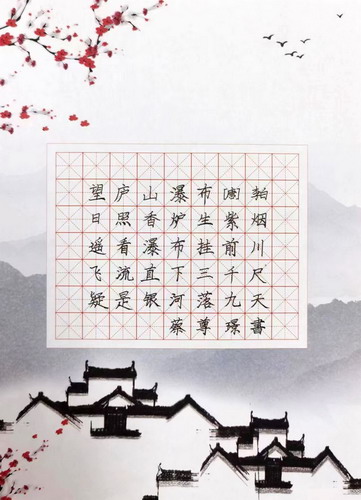 望庐山瀑布
日照香炉生紫烟
遥看瀑布挂前川
飞流直下三千尺
疑是银河落九天
蔡尊璟書